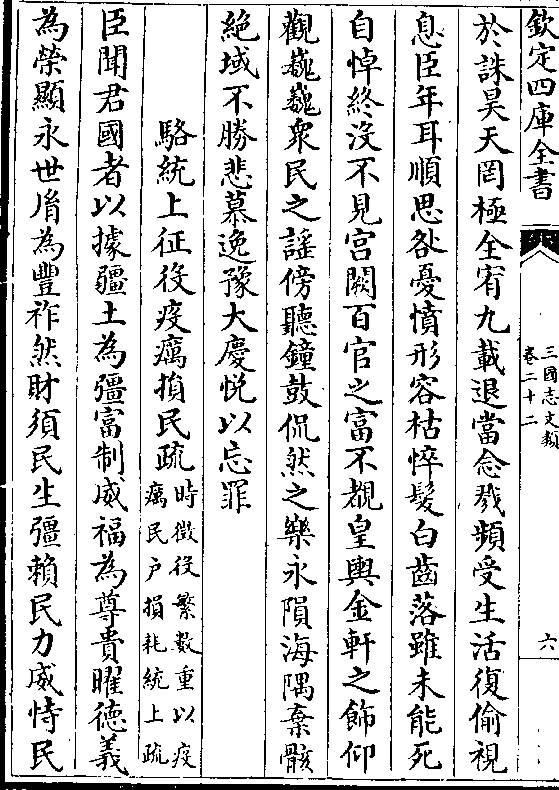 欽定四庫全書
三國志文類
卷二十二
六
於誅昊天罔極全宥九載退當念戮頻受生活復偷視
息臣年耳順思咎憂憤形容枯悴髮白齒落雖未能死
自悼終沒不見宫闕百官之富不覩皇輿金軒之飾仰
觀巍巍衆民之謡傍聽鐘鼓侃然之樂永隕海隅棄骸
絶域不勝悲慕逸豫大慶悦以忘罪
駱統上征役疫癘損民疏
時徴役繁数重以疫
癘民户損耗統上疏
臣聞君國者以據疆土為彊富制威福為尊貴曜德義
為榮顯永世胤為豐祚然財須民生彊賴民力威恃民